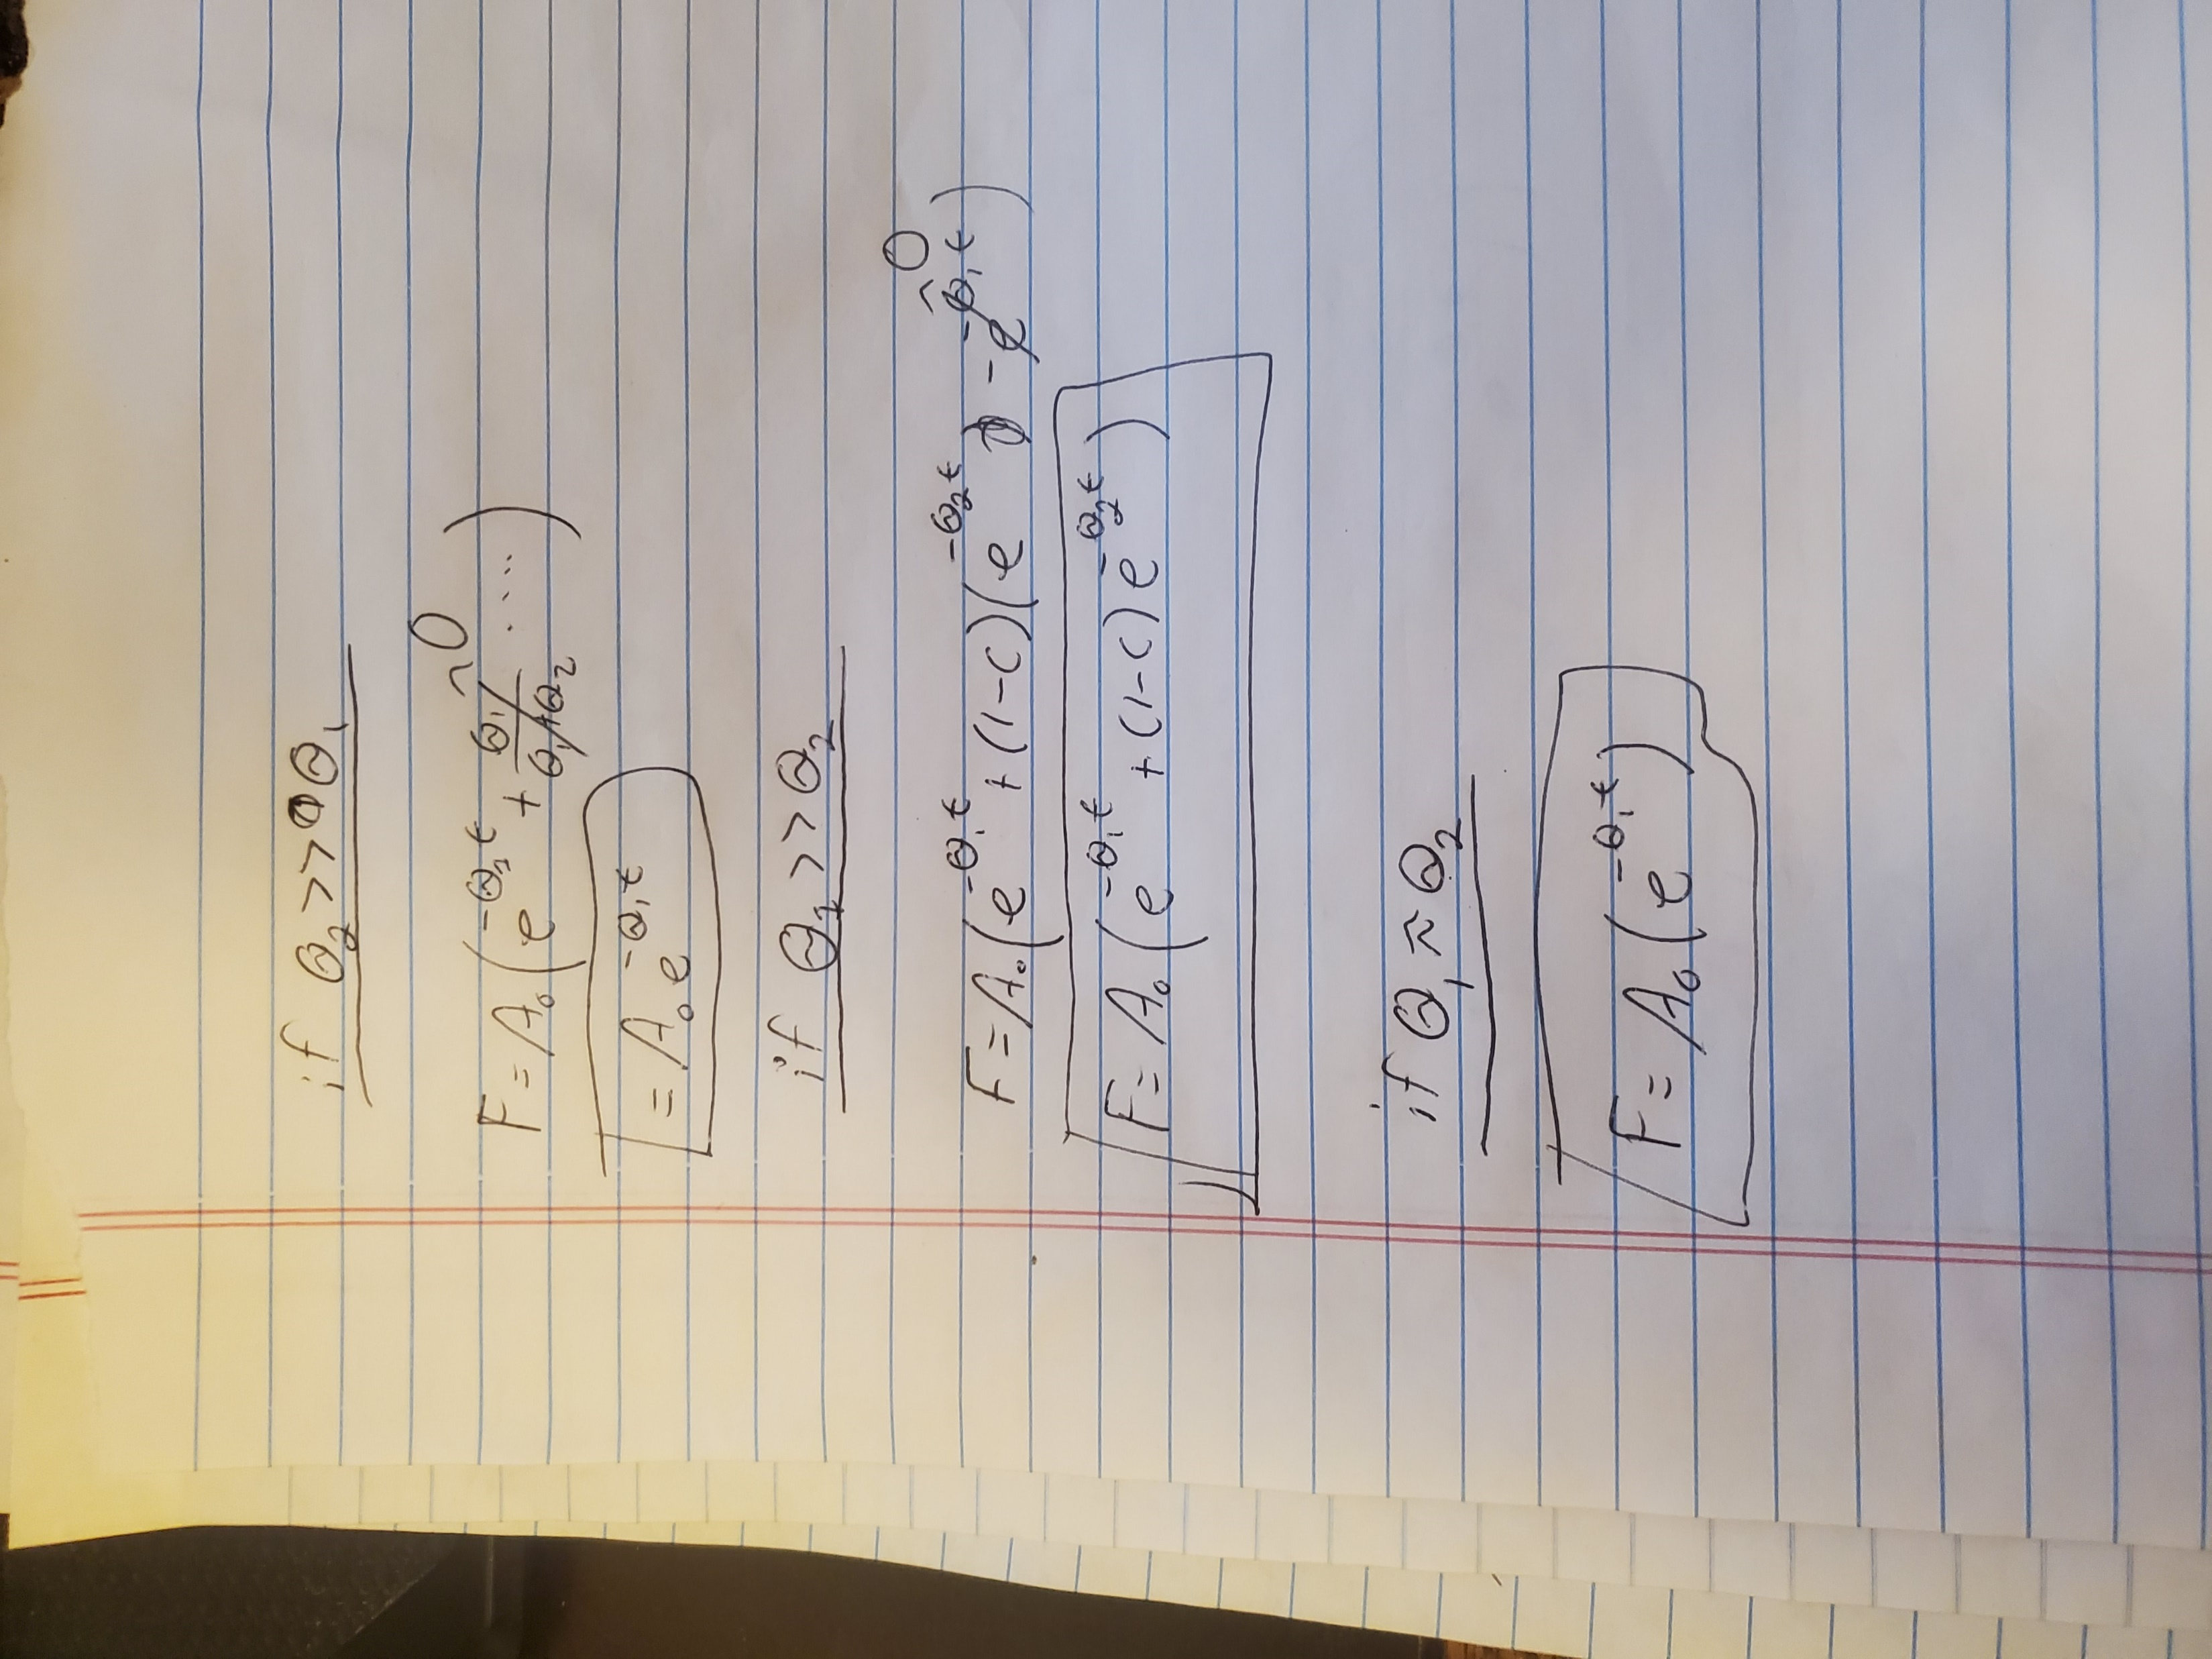 if θ₂ >> θ₁
F = A₀(e^(-θ₁t) + θ₁/(θ₁+θ₂) ....) ~0
= A₀e^(-θ₁t)
if θ₁ >> θ₂
F = A₀(e^(-θ₁t) + (1-c)(e^(-θ₂t) - e^(-θ₁t)) ~0
F = A₀(e^(-θ₁t) + (1-c)e^(-θ₂t))
if θ₁ ≈ θ₂
F = A₀(e^(-θ₁t))